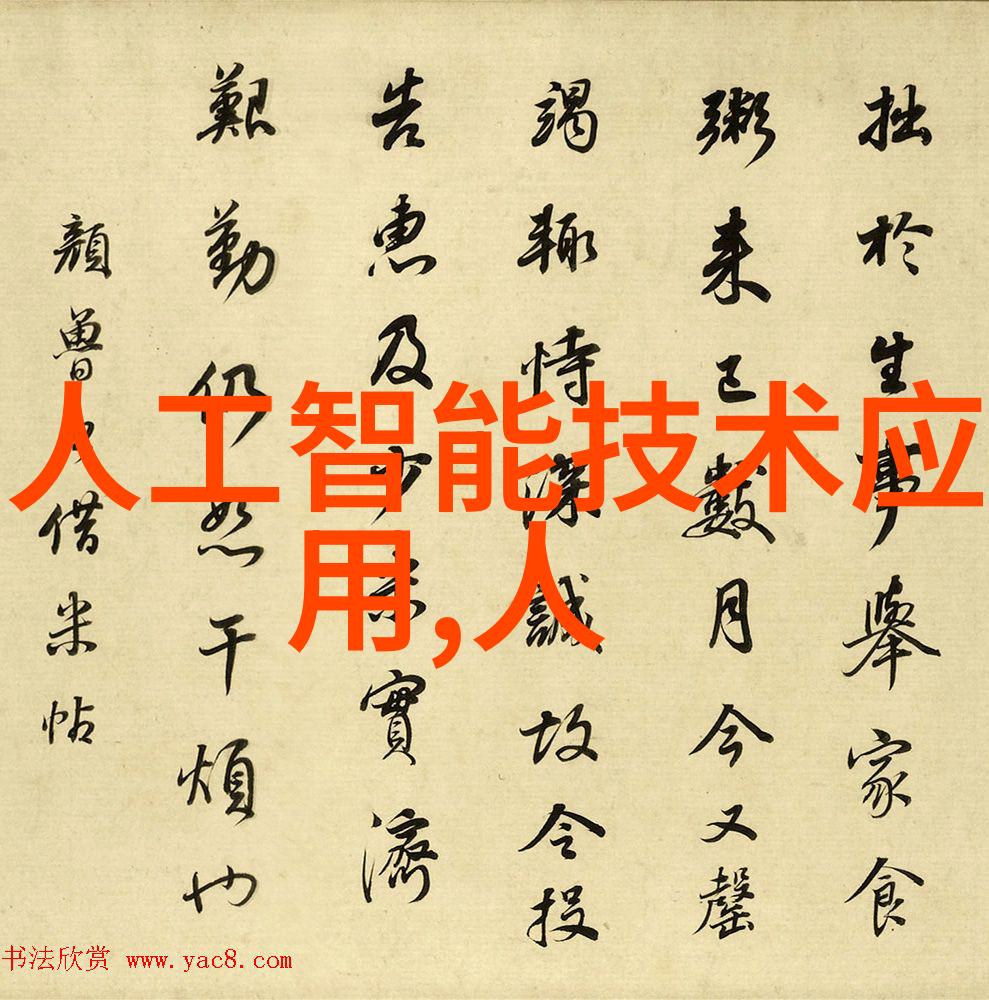 拙於生事舉家食
粥来已數月今又罄
竭輙恃深誠故令投
告惠及少米實濟
艱勤仍恕干煩也
顏魯公借米帖
人工智能技术应
用,人
书法欣赏 www.yac8.com